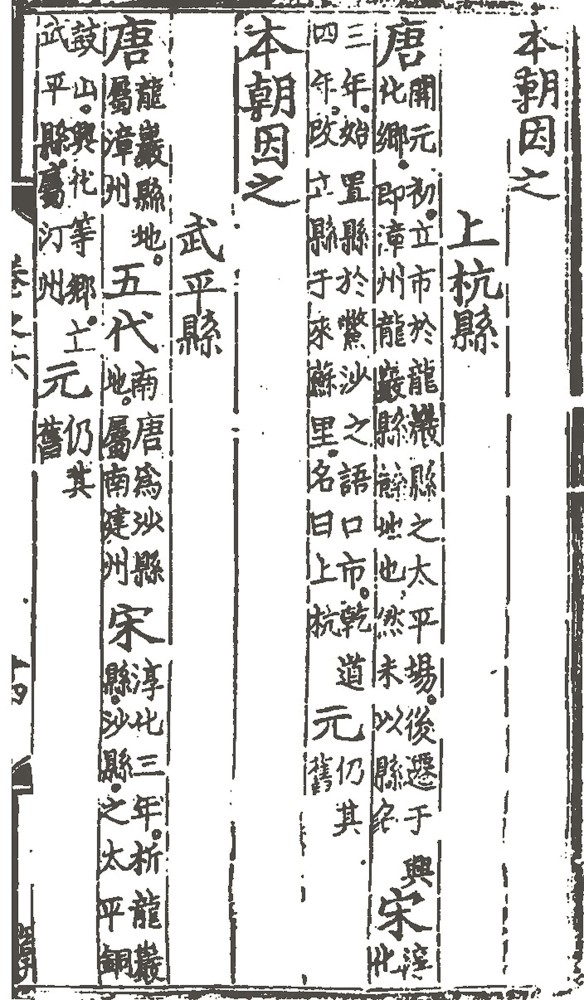 本朝因之
上杭縣
唐
開元初。立市於龍巖縣之太平場。後遷于興
化鄉。即漳州龍巖縣辭地也,然未以縣名
宋
淳
化
三年。始置縣於鱉沙之語口市。乾道
四年。改立縣于來蘇里。名曰上杭
元
仍其
舊
本朝因之
武平縣
唐
龍巖縣地。
屬漳州
五代
南唐為沙縣
地。屬南建州
宋
淳化三年。析龍巖
縣。沙縣。之太平銅
鼓山。興化等鄉。立
武平縣屬汀州
元
仍其
舊
卷之六
十四